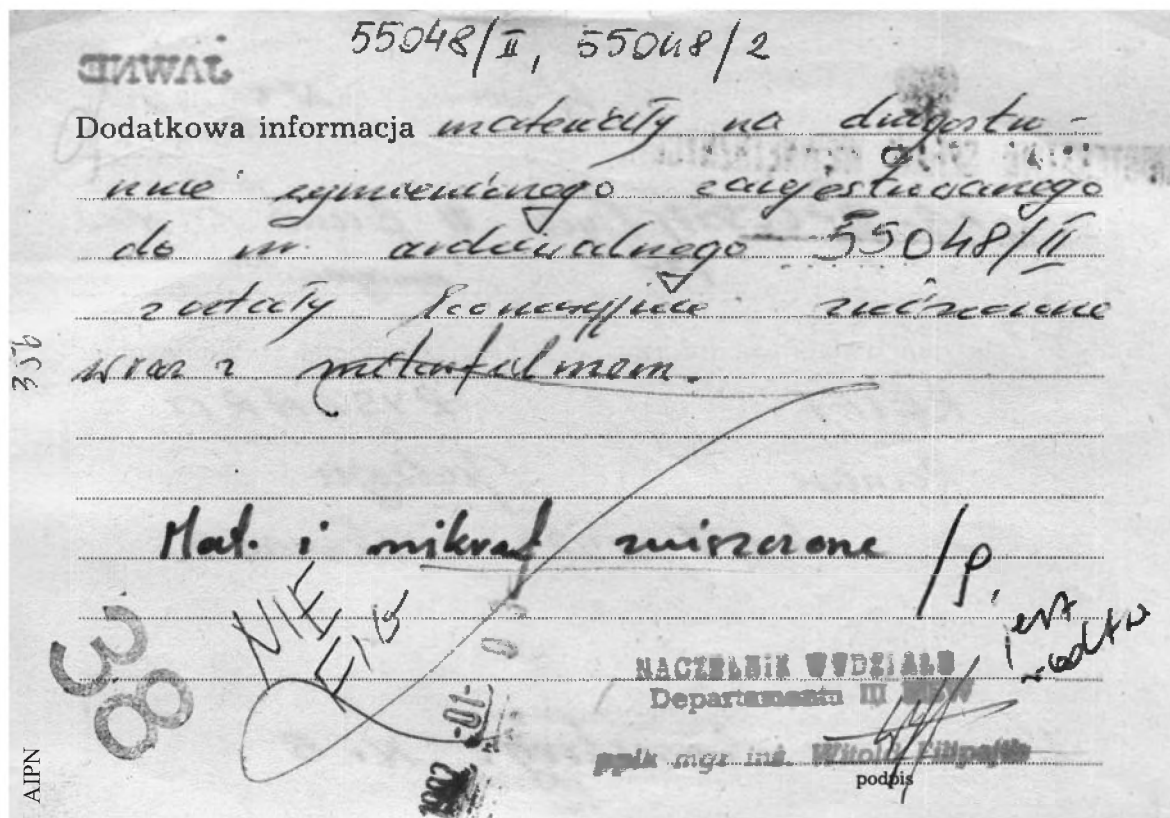 55048/II, 55048/2
JAWNE
Dodatkowa informacja materiały na drugostro-
nnie wymienionego zarejestrowanego
do nr. archiwalnego 55048/II
zostały komisyjnie zniszczone
wraz z mikrofilmem.
35b
Mat. i mikrof zniszczone /P.
NIE
FIG
jest
38
NACZELNIK WYDZIAŁU
Departamentu III MSW
ppłk mgr inż. Witold
podpis
AIPN